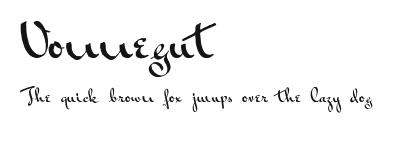 Vonnegut
The quick brown fox jumps over the lazy dog